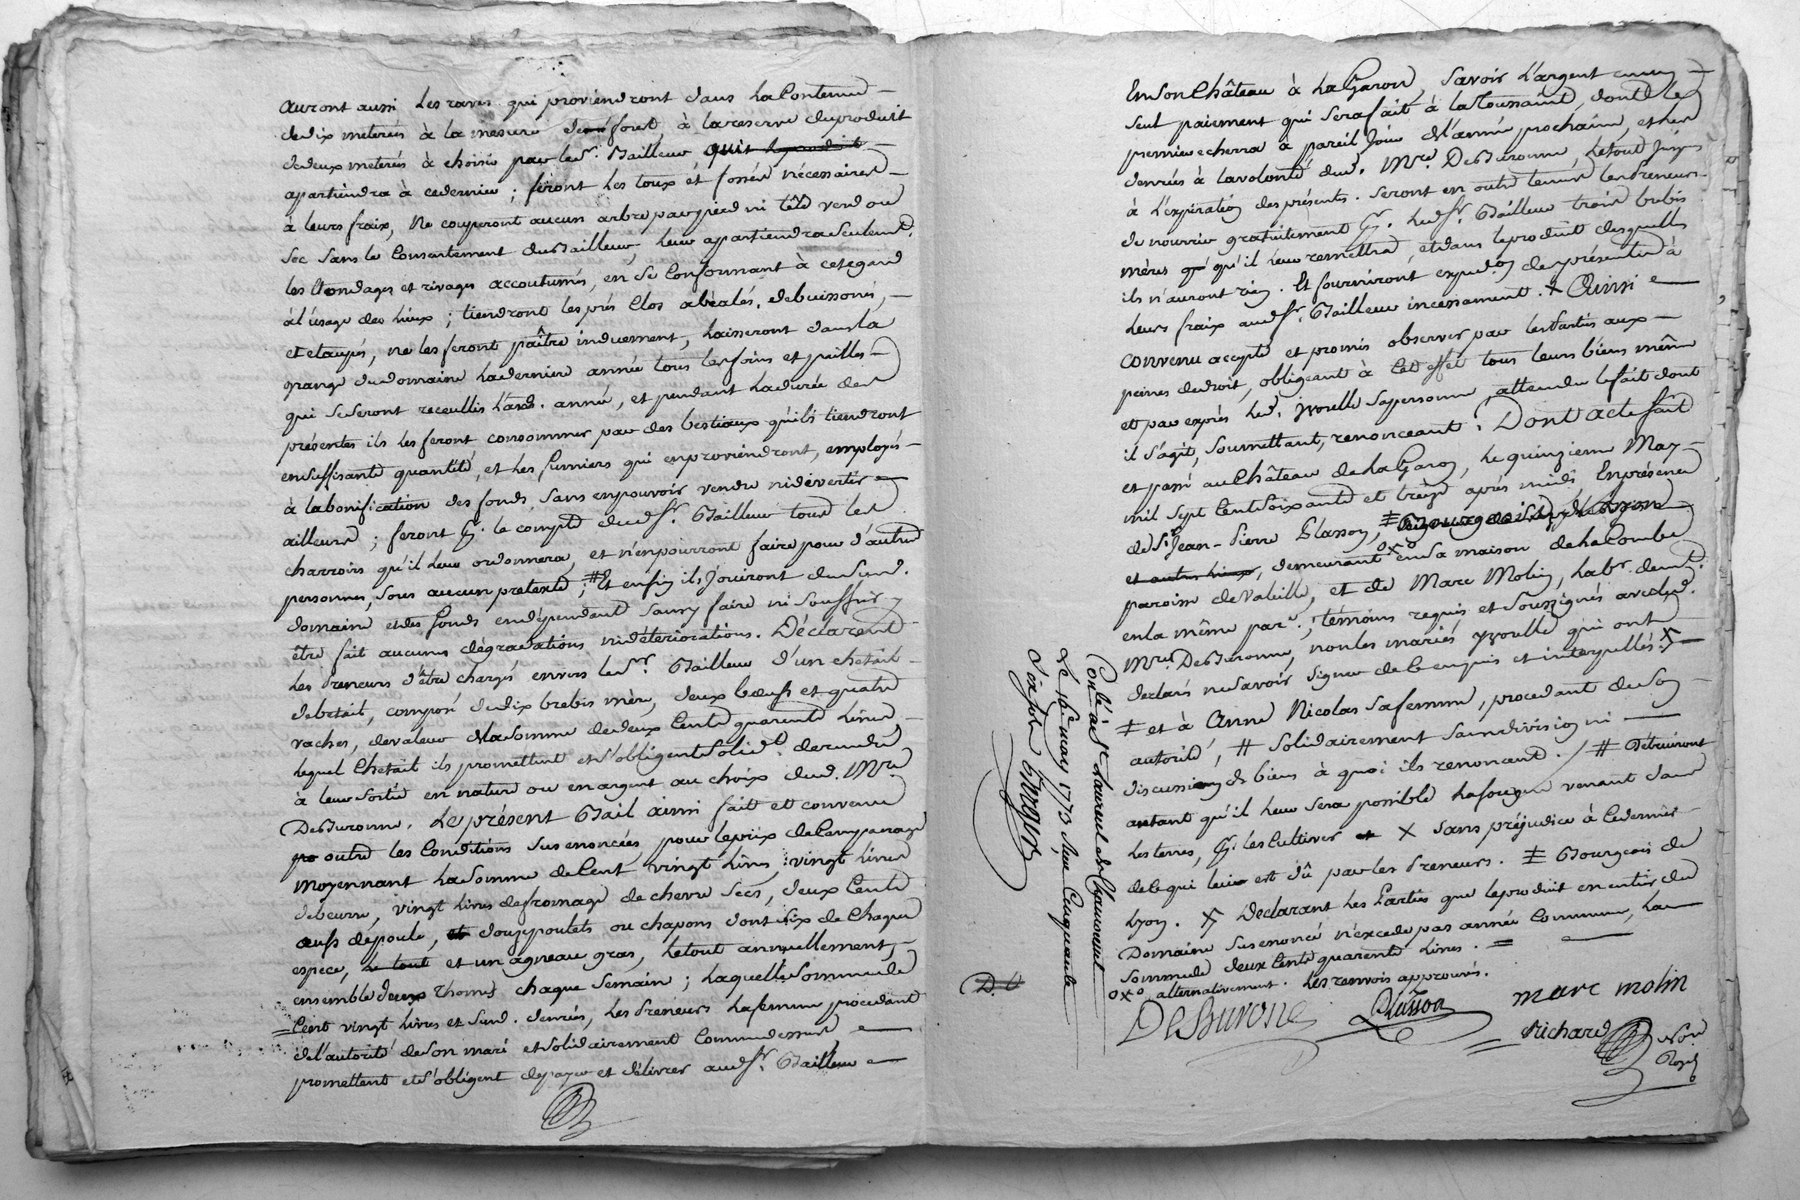 auront aussi les raves qui proviendront dans la Contenue
de dix meterés à la mesure de forest, à la reserve du produit
de deux meterés à choisir par led.r Bailleur,
apartiendra à ce dernier ; feront les toux et fossés nécessaires
à leurs fraix, Ne couperont aucun arbre par pied ni tête verd ou
sec sans le Consentement du Bailleur, leur apartiendra seulem.t
les Etondages et rivages accoutumés, en se Conformant à cet egard
à l'usage des lieux ; tiendront les prés Clos abéalés, debuissonés,
et etaupés, ne les feront paître induement, laisseront dans la
grange dud domaine la derniere année tous les foins et pailles
qui se seront receullis lad. année, et pendant la durée des
présentes ils les feront consommer par des bestiaux qu'ils tiendront
en suffisante quantité, et les fumiers qui en proviendront, employés
à la bonification des fonds, sans en pouvoir vendre ni divertir
ailleurs ; feront p.r le compte dud s.r Bailleur tous les
charrois qu'il leur ordonnera, et n'en pourront faire pour d'autres
personnes, sous aucun pretexte ; # Et enfin ils Jouiront dud sud.
domaine et des fonds en dépendant sans y faire ni souffrir
être fait aucunes dégradations ni détériorations. Déclarent
les Preneurs d'être chargés envers led s.r Bailleur d'un chetail
de betail, composé de dix brebis mère, deux bœufs et quatre
vaches, de valeur de la somme de deux Cents quarente Livres,
lequel Chetail ils promettent et s'obligent solid.t de rendre
à leur sortie en nature ou en argent au choix dud. M.re
DesBuronne. Le présent Bail ainsi fait et convenu
outre les Conditions sus enoncées, pour le prix de Compagnage
moyennant la somme de Cent vingt livres, vingt livres
de beurre, vingt livres de fromage de chevre secs, deux Cents
œufs de poule, douze poulets ou chapons dont six de Chaque
espece, le tout et un agneau gras, le tout annuellement,
ensemble deux Thomes chaque semaine ; laquelle somme de
Cent vingt livres et susd. denrées, les Preneurs la femme procedant
de l'autorité de son mari et solidairement Comme dessus
promettent et s'obligent de payer et délivrer aud s.r Bailleur
En son Château à la Garon, savoir l'argent en un
seul paiement qui sera fait à la Toussaint, dont le
premier echerra à pareil Jour de l'année prochaine, et les
denrées à la volonté dud. M.re DesBuronne, le tout jusques
à l'expiration des présentes. Seront en outre tenus les Preneurs
de nourrir gratuitement p.r led s.r Bailleur trois brebis
mères qu'il leur remettra, et dans le produit desquelles
ils n'auront rien. Et fourniront expedion des présentes à
leurs fraix aud s.r Bailleur incessament. + Ainsi
convenu accepté et promis observer par les Parties aux
peines de droit, obligeant à cet effet tous leurs biens même
et par exprès led. yvorelle sa personne attendu le fait dont
il s'agit, soumettant, renonceant. Dont acte fait
et passé au Château de la Garon, le quinzieme May
mil sept Cent soixante et treize après midi, En présence
de S.r Jean-Pierre Plasson,
et autres lieux, demeurant oxo en sa maison de la Combe
paroisse de Valeille, et de Marc Molin, lab.r dem.t
en la même par.e, témoins requis et soussignés avec led.
M.re DesBuronne, non les mariés yvorelle qui ont
declaré ne savoir signer de ce enquis et interpellés.
‡ et à Anne Nicolas sa femme, procedant de son
autorité, # solidairement sans division ni
discussion de biens à quoi ils renoncent. / # Détruiront
autant qu'il leur sera possible la fougere venant dans
les terres, p.r les Cultiver X sans préjudice à ce dernier
de ce qui lui est dû par les Preneurs. ‡ Bourgeois de
Lyon. Declarant les Parties que le produit en entier du
Domaine sus enoncé n'excede pas année Commune, la
somme de deux Cents quarente Livres. =
oxo alternativement. Les renvois approuvés.
DesBuronne
Plasson
marc molin
Richard
No.re
Royal
Con.lé à S.t Laurent de Chamousset
Le 18 may 1773